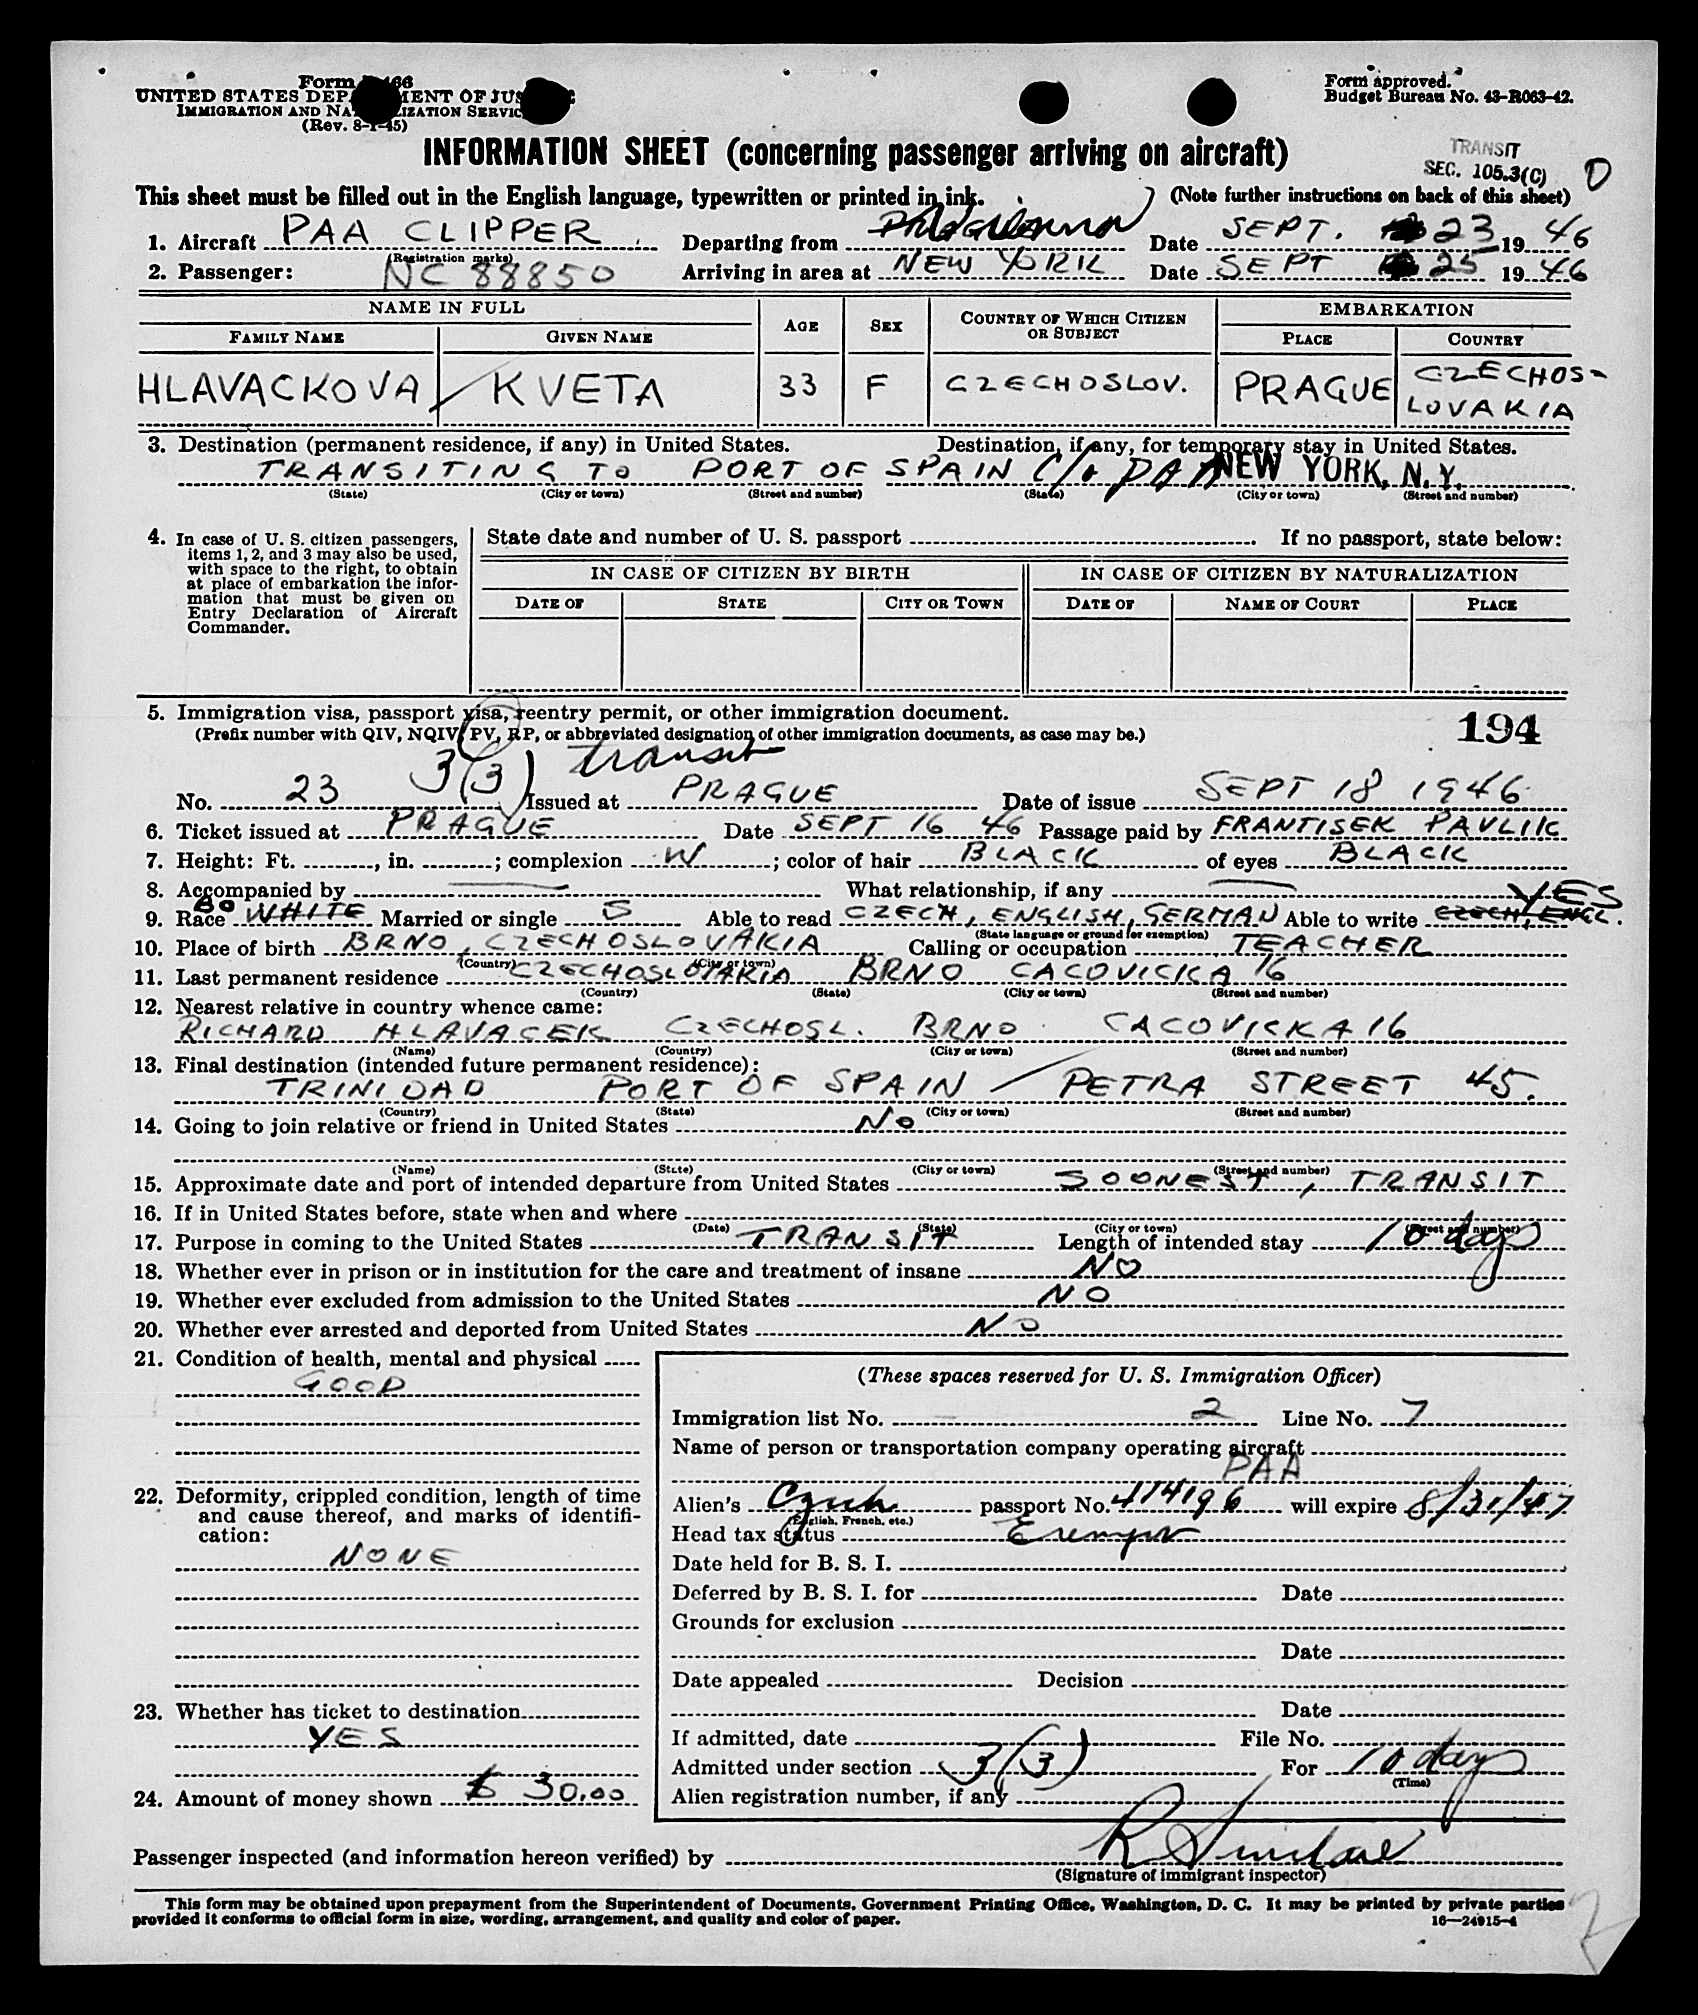 Form
UNITED STATES DEPARTMENT OF JUSTICE
IMMIGRATION AND NATURALIZATION SERVICE
(Rev. 8-1-45)
Form approved.
Budget Bureau No. 43-R063-42.
INFORMATION SHEET (concerning passenger arriving on aircraft)
TRANSIT
SEC. 105.3(C)
D
This sheet must be filled out in the English language, typewritten or printed in ink. (Note further instructions on back of this sheet)
1. Aircraft PAA CLIPPER Departing from Date SEPT. 23 1946
(Registration marks)
2. Passenger: NC 88850 Arriving in area at NEW YORK Date SEPT 25 1946
NAME IN FULL AGE SEX COUNTRY OF WHICH CITIZEN OR SUBJECT EMBARKATION
FAMILY NAME GIVEN NAME PLACE COUNTRY
HLAVACKOVA / KVETA 33 F CZECHOSLOV. PRAGUE CZECHOS-
LOVAKIA
3. Destination (permanent residence, if any) in United States. Destination, if any, for temporary stay in United States.
TRANSITING TO PORT OF SPAIN C/o PAA NEW YORK, N.Y.
(State) (City or town) (Street and number) (State) (City or town) (Street and number)
4. In case of U. S. citizen passengers,
items 1, 2, and 3 may also be used,
with space to the right, to obtain
at place of embarkation the infor-
mation that must be given on
Entry Declaration of Aircraft
Commander.
State date and number of U. S. passport If no passport, state below:
IN CASE OF CITIZEN BY BIRTH IN CASE OF CITIZEN BY NATURALIZATION
DATE OF STATE CITY OR TOWN DATE OF NAME OF COURT PLACE
5. Immigration visa, passport visa, reentry permit, or other immigration document.
(Prefix number with QIV, NQIV, PV, RP, or abbreviated designation of other immigration documents, as case may be.)
194
3(3) transit
No. 23 Issued at PRAGUE Date of issue SEPT 18 1946
6. Ticket issued at PRAGUE Date SEPT 16 46 Passage paid by FRANTISEK PAVLIK
7. Height: Ft. , in. ; complexion W ; color of hair BLACK of eyes BLACK
8. Accompanied by — What relationship, if any —
YES
BO
9. Race WHITE Married or single S Able to read CZECH, ENGLISH, GERMAN Able to write CZECH, ENGL.
(State language or ground for exemption)
10. Place of birth BRNO, CZECHOSLOVAKIA Calling or occupation TEACHER
(Country) (City or town)
11. Last permanent residence CZECHOSLOVAKIA BRNO CACOVICKA 16
(Country) (State) (City or town) (Street and number)
12. Nearest relative in country whence came:
RICHARD HLAVACEK CZECHOSL. BRNO CACOVICKA 16
(Name) (Country) (City or town) (Street and number)
13. Final destination (intended future permanent residence):
TRINIDAD PORT OF SPAIN / PETRA STREET 45.
(Country) (State) (City or town) (Street and number)
14. Going to join relative or friend in United States NO
(Name) (State) (City or town) (Street and number)
15. Approximate date and port of intended departure from United States SOONEST, TRANSIT
16. If in United States before, state when and where
(Date) (State) (City or town) (Street and number)
17. Purpose in coming to the United States TRANSIT Length of intended stay 10 days
18. Whether ever in prison or in institution for the care and treatment of insane NO
19. Whether ever excluded from admission to the United States NO
20. Whether ever arrested and deported from United States NO
21. Condition of health, mental and physical
GOOD
22. Deformity, crippled condition, length of time
and cause thereof, and marks of identifi-
cation:
NONE
23. Whether has ticket to destination
YES
24. Amount of money shown $ 30.00
(These spaces reserved for U. S. Immigration Officer)
Immigration list No. 2 Line No. 7
Name of person or transportation company operating aircraft
PAA
Alien's Czech passport No. 414196 will expire 8/31/47
(English, French, etc.)
Head tax status Exempt
Date held for B. S. I.
Deferred by B. S. I. for Date
Grounds for exclusion
Date
Date appealed Decision
Date
If admitted, date File No.
Admitted under section 3(3) For 10 days
(Time)
Alien registration number, if any
Passenger inspected (and information hereon verified) by R Sinclair
(Signature of immigrant inspector)
This form may be obtained upon prepayment from the Superintendent of Documents, Government Printing Office, Washington, D. C. It may be printed by private parties
provided it conforms to official form in size, wording, arrangement, and quality and color of paper.
16—24915-4